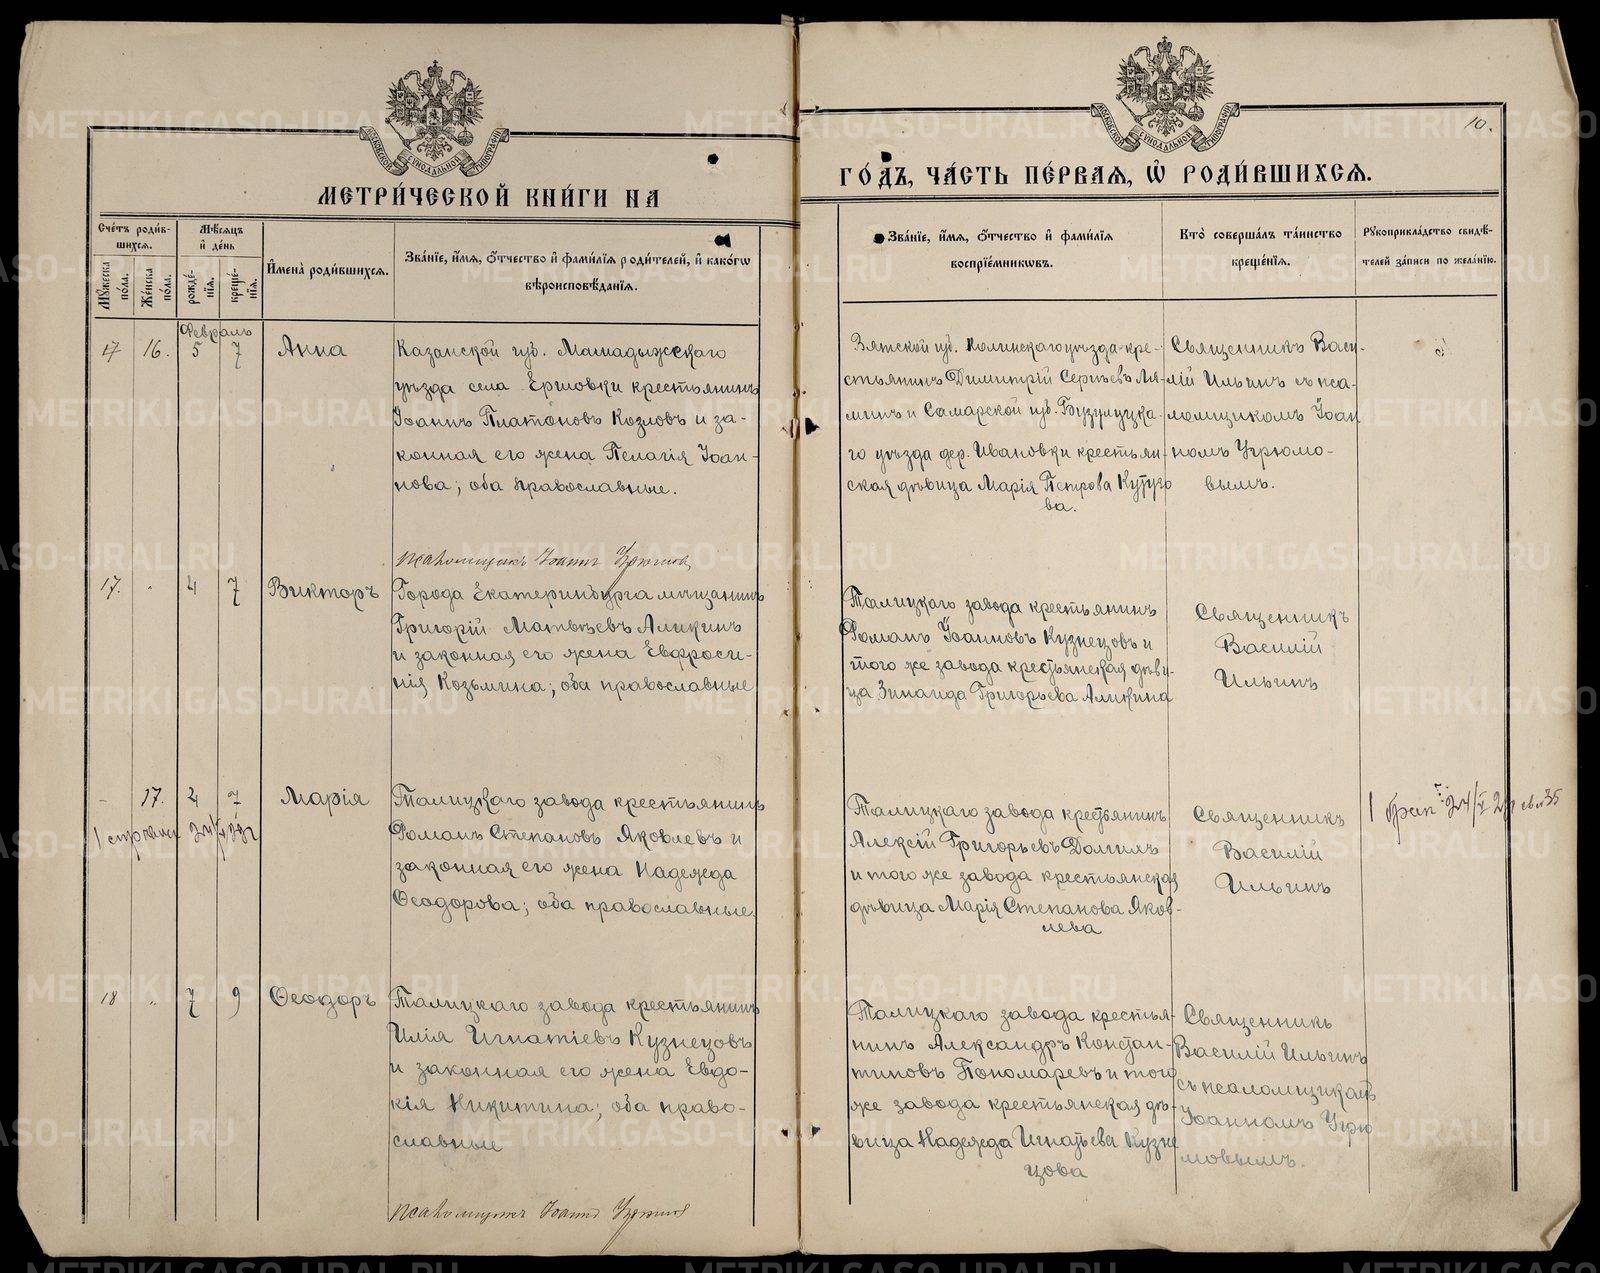 МЕТРИ́ЧЕСКОЙ КНИ́ГИ НА
ГО́ДЪ, ЧА́СТЬ ПЕ́РВАѦ, Ѡ҆ РОДИ́ВШИХСѦ.
10.
Сче́тъ роди́в-
шихсѧ.
Мѣ́сѧцъ
и҆ де́нь
Мꙋ́жеска
по́ла.
Же́нска
по́ла.
рожде́-
нїѧ.
креще́-
нїѧ.
И҆мена̀ роди́вшихсѧ.
Зва́нїе, и҆́мѧ, ѻ҆́тчество и҆ фами́лїѧ роди́телей, и҆ како́гѡ
вѣроисповѣ́данїѧ.
Зва́нїе, и҆́мѧ, ѻ҆́тчество и҆ фами́лїѧ
воспрїе́мникѡвъ.
Кто̀ соверша́лъ та́инство
креще́нїѧ.
Рꙋкоприкла́дство свидѣ́-
телей за́писи по жела́нїю.
Февраль
16. 5 7
Анна
Казанской губ. Мамадыжскаго
уѣзда села Ершовки крестьянинъ
Іоаннъ Платоновъ Козловъ и за-
конная его жена Пелагія Іоан-
нова; оба православные.
Вятской губ. уѣзда кре-
стьянинъ Димитрій Сергѣевъ Ля-
минъ и Самарской губ. Бузулуцка-
го уѣзда дер. Ивановки крестьян-
ская дѣвица Марія Петрова
ва.
Священникъ Васи-
лій Ильинъ съ пса-
ломщикомъ Іоан
номъ Угрюмо-
вымъ.
псаломщикъ Іоаннъ Угрюмовъ
17. " 4 7
Викторъ
Города Екатеринбурга мѣщанинъ
Григорій Матвѣевъ Аликинъ
и законная его жена Евфроси-
нія Козьмина; оба православные
Талицкаго завода крестьянинъ
Романъ Іоанновъ Кузнецовъ и
того же завода крестьянская дѣви-
ца Зинаида Григорьева Аликина
Священникъ
Василій
Ильинъ
- 17. 4 7
Марія
Талицкаго завода крестьянинъ
Романъ Степановъ Яковлевъ и
законная его жена Надежда
Ѳеодорова; оба православные.
Талицкаго завода крестьянинъ
Алексій Григорьевъ Долгихъ
и того же завода крестьянская
дѣвица Марія Степанова Яков-
лева
Священникъ
Василій
Ильинъ
18 " 7 9
Ѳеодоръ
Талицкаго завода крестьянинъ
Илія Игнатіевъ Кузнецовъ
и законная его жена Евдо-
кія Никитина; оба право-
славные
Талицкаго завода крестья-
нинъ Александръ Констан-
тиновъ Пономаревъ и того
же завода крестьянская дѣ-
вица Надежда Игнатьева Кузне
цова
Священникъ
Василій Ильинъ
съ псаломщикомъ
Іоанномъ Угрю
мовымъ.
псаломщикъ Іоаннъ Угрюмовъ